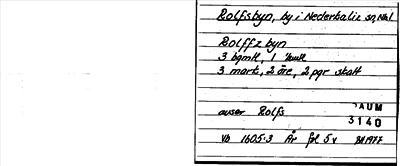 Rolfsbyn, by i Nederkalix sn, Nbl
Rolffz byn
3 bgmtl, 1
3 mark, 2 öre, 2 pgr skatt
avser Rolfs
DAUM
3140
Vb 1605:3 År fol 5 v 1977